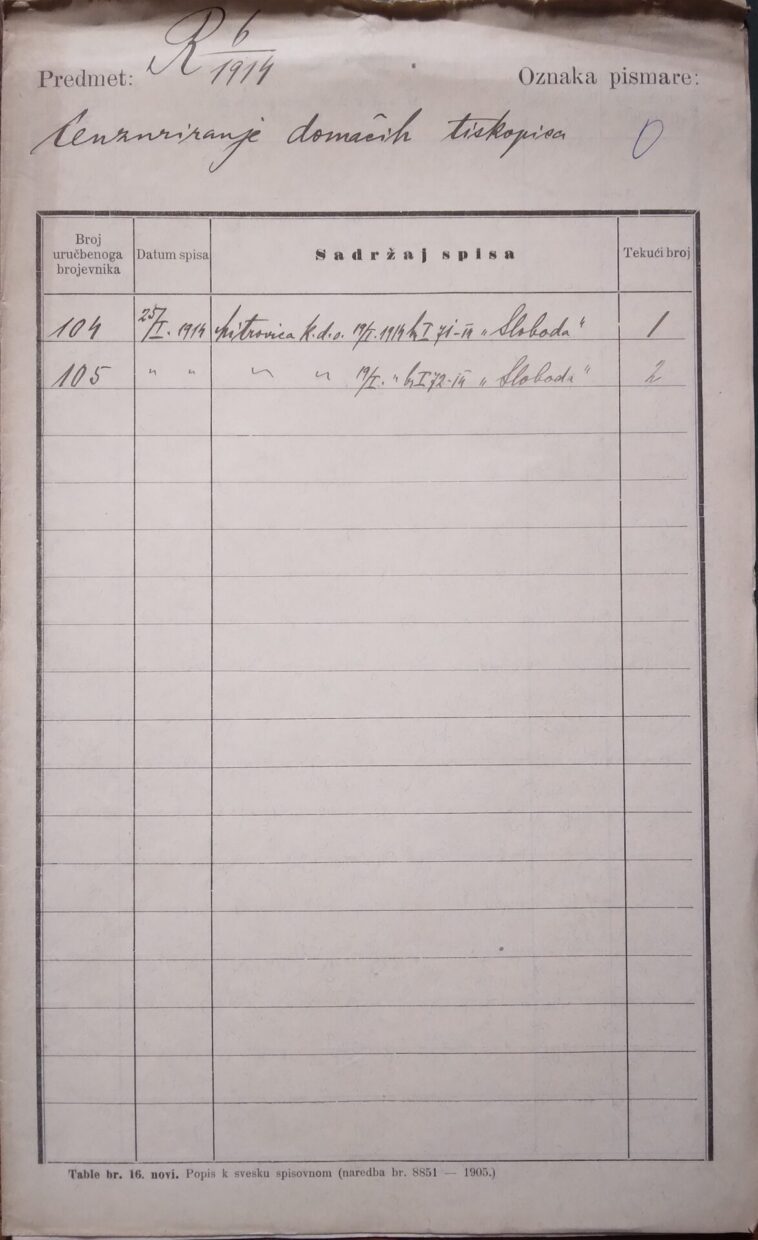 Predmet: R 6/1914 Oznaka pismare:
Cenzuriranje domaćih tiskopisa 0
Broj uručbenoga brojevnika Datum spisa Sadržaj spisa Tekući broj
104 25/I. 1914 Mitrovica k.d.o. 19/I. 1914 I 71-14 „Sloboda" 1
105 " " " " 19/I. " I 72-14 „Sloboda" 2
Table br. 16. novi. Popis k svesku spisovnom (naredba br. 8851 — 1905.)